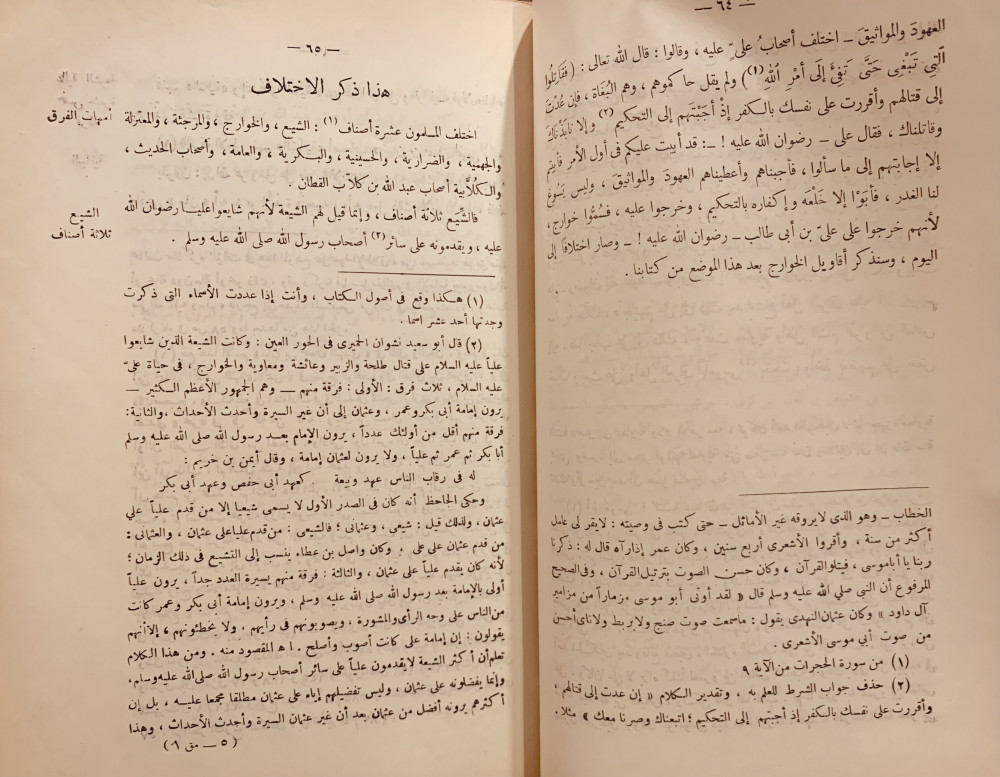 — ٦٤ —
العهودَ والمواثيقَ ــ اختلف أصحابُ علىّ عليه ، وقالوا : قال الله تعالى : ( فَقَاتِلُوا
الَّتِي تَبْغِى حَتَّى تَفِىَّ إلَى أمْرِ اللهِ (١) ) ولم يقل حاكموهم ، وهم البُغَاة ، فإن عُدْتَ
إلى قتالهم وأقررت على نفسك بالكفر إذْ أَجَبْتَهم إلى التحكيم (٢) وإلا نابذْنَاكَ
وقاتلناك ، فقال على ــ رضوان الله عليه ! ــ: قد أبيت عليكم فى أول الأمر فأبيتم
إلا إجابتهم إلى ما سألوا ، فأجبناهم وأعطيناهم العهودَ والمواثيقَ ، وليس يَسُوغ
لنا الغدر ، فأبَوْا إلا خَلْعَه وإكفاره بالتحكيم ، وخرجوا عليه ، فسُمُّوا خوارج ،
لأنهم خرجوا على علىّ بن أبى طالب ــ رضوان الله عليه ! ــ وصار اختلافا إلى
اليوم ، وسنذكر أقاويل الخوارج بعد هذا الموضع من كتابنا .
الخطاب ــ وهو الذى لا يروقه غير الأماثل ــ حتى كتب فى وصيته : لا يقر لى عامل
أكثر من سنة ، وأقروا الأشعرى أربع سنين ، وكان عمر إذا رآه قال له : ذكرنا
ربنا يا أبا موسى ، فيتلو القرآن ، وكان حسن الصوت بترتيل القرآن ، وفى الصحيح
المرفوع أن النبي صلي الله عليه وسلم قال « لقد أوتى أبو موسى مزماراً من مزامير
آل داود » وكان عثمان النهدى يقول : ما سمعت صوت صنج ولا بربط ولا ناى أحسن
من صوت أبي موسى الأشعرى .
(١) من سورة الحجرات من الآية ٩
(٢) حذف جواب الشرط للعلم به ، وتقدير الكلام « إن عدت إلى قتالهم ؛
وأقررت على نفسك بالكفر إذ أجبتهم إلى التحكيم ؛ اتبعناك وصرنا معك » مثلا .
— ٦٥ —
هذا ذكر الاختلاف
اختلف المسلمون عشرة أصناف (١) : الشيع ، والخوارج ، والمرجئة ، والمعتزلة
أمهات الفرق
والجهمية ، والضرارية ، والحسينية ، والبكرية ، والعامة ، وأصحاب الحديث ،
والكُلاَّبية أصحاب عبد الله بن كلاَّب القطان .
فالشِّيَع ثلاثة أصناف ، وإنما قيل لهم الشيعة لأنهم شايعوا عليا رضوان الله
الشيع
ثلاثة أصناف
عليه ، ويقدمونه على سائر (٢) أصحاب رسول الله صلى الله عليه وسلم .
(١) هكذا وقع فى أصول الكتاب ، وأنت إذا عددت الأسماء التى ذكرت
وجدتها أحد عشر اسما .
(٢) قال أبو سعيد نشوان الحميرى فى الحور العين : وكانت الشيعة الذين شايعوا
علياً عليه السلام على قتال طلحة والزبير وعائشة ومعاوية والخوارج ، فى حياة علىّ
عليه السلام ، ثلاث فرق : الأولى : فرقة منهم ــ وهم الجمهور الأعظم الكثير ــ
يرون إمامة أبى بكر وعمر ، وعثمان إلى أن غير السيرة وأحدث الأحداث ، والثانية :
فرقة منهم أقل من أولئك عدداً ، يرون الإمام بعد رسول الله صلى الله عليه وسلم
أبا بكر ثم عمر ثم علياً ، ولا يرون لعثمان إمامة ، وقال أيمن بن خريم :
له فى رقاب الناس عهد وبيعة كعهد أبى حفص وعهد أبى بكر
وحكى الجاحظ أنه كان فى الصدر الأول لا يسمى شيعيا إلا من قدم علياً علي
عثمان ، ولذلك قيل : شيعى ، وعثمانى ؛ فالشيعى : من قدم عليا على عثمان ، والعثمانى :
من قدم عثمان على على . وكان واصل بن عطاء ينسب إلى التشيع فى ذلك الزمان ؛
لأنه كان يقدم علياً على عثمان ، والثالثة : فرقة منهم يسيرة العدد جداً ، يرون علياً
أولى بالإمامة بعد رسول الله صلى الله عليه وسلم ، ويرون إمامة أبى بكر وعمر كانت
من الناس على وجه الرأى والمشورة ، ويصوبونهم فى رأيهم ، ولا يخطئونهم ، إلا أنهم
يقولون : إن إمامة على كانت أصوب وأصلح . اﻫ المقصود منه . ومن هذا الكلام
تعلم أن أكثر الشيعة لا يقدمون علياً على سائر أصحاب رسول الله صلى الله عليه وسلم ،
وإنما يفضلونه على عثمان ، وليس تفضيلهم إياه على عثمان مطلقا مجمعا عليه ، بل إن
أكثرهم يرونه أفضل من عثمان بعد أن غير عثمان السيرة وأحدث الأحداث ، وهذا
( ٥ ــ مق ١ )